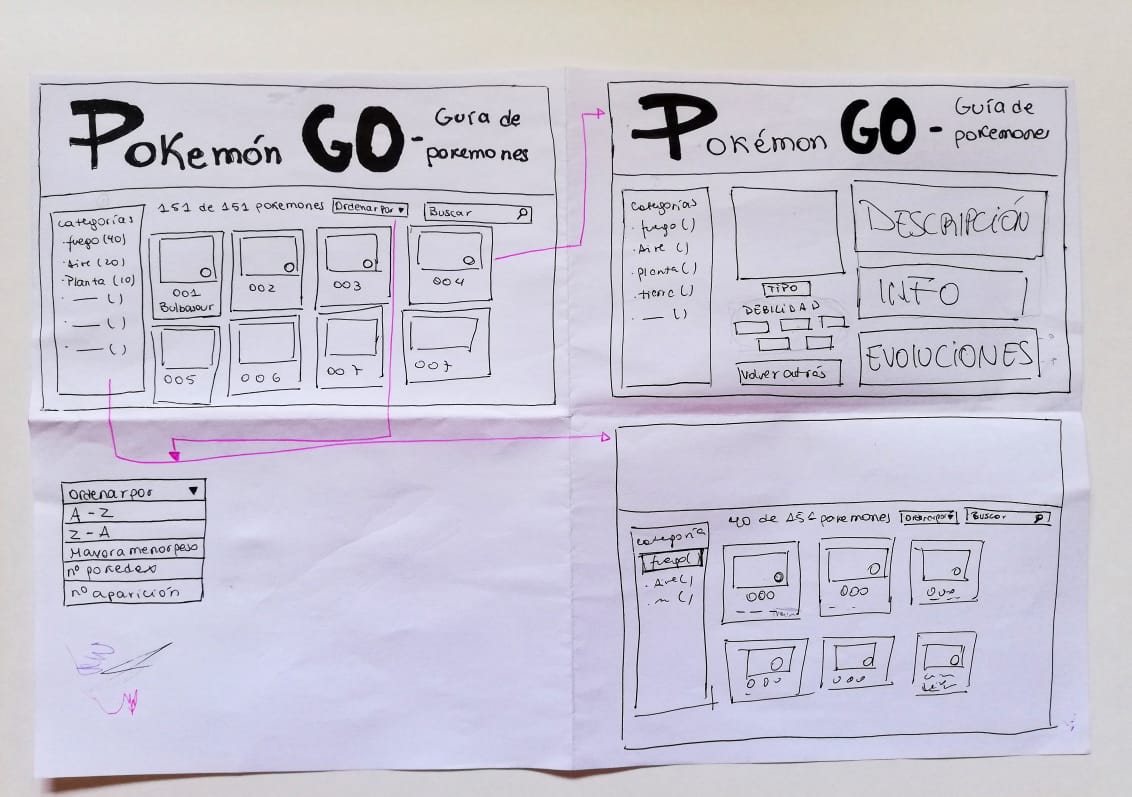 Pokemón GO -
Guía de
pokemones
categorías
fuego (40)
Aire (20)
Planta (10)
— ()
— ()
— ()
151 de 151 pokemones
Ordenar por ▾
Buscar
001
Bulbasaur
002
003
004
005
006
007
007
Pokémon GO -
Guía de
pokemones
categorías
fuego ()
Aire ()
planta ()
tierra ()
— ()
TIPO
DEBILIDAD
Volver atrás
DESCRIPCIÓN
INFO
EVOLUCIONES
Ordenar por ▼
A - Z
Z - A
Mayor a menor peso
nº pokedex
nº aparición
40 de 151 pokemones
Ordenar por ▾
Buscar
categoría
fuego ()
Aire ()
000
000
000
000
000